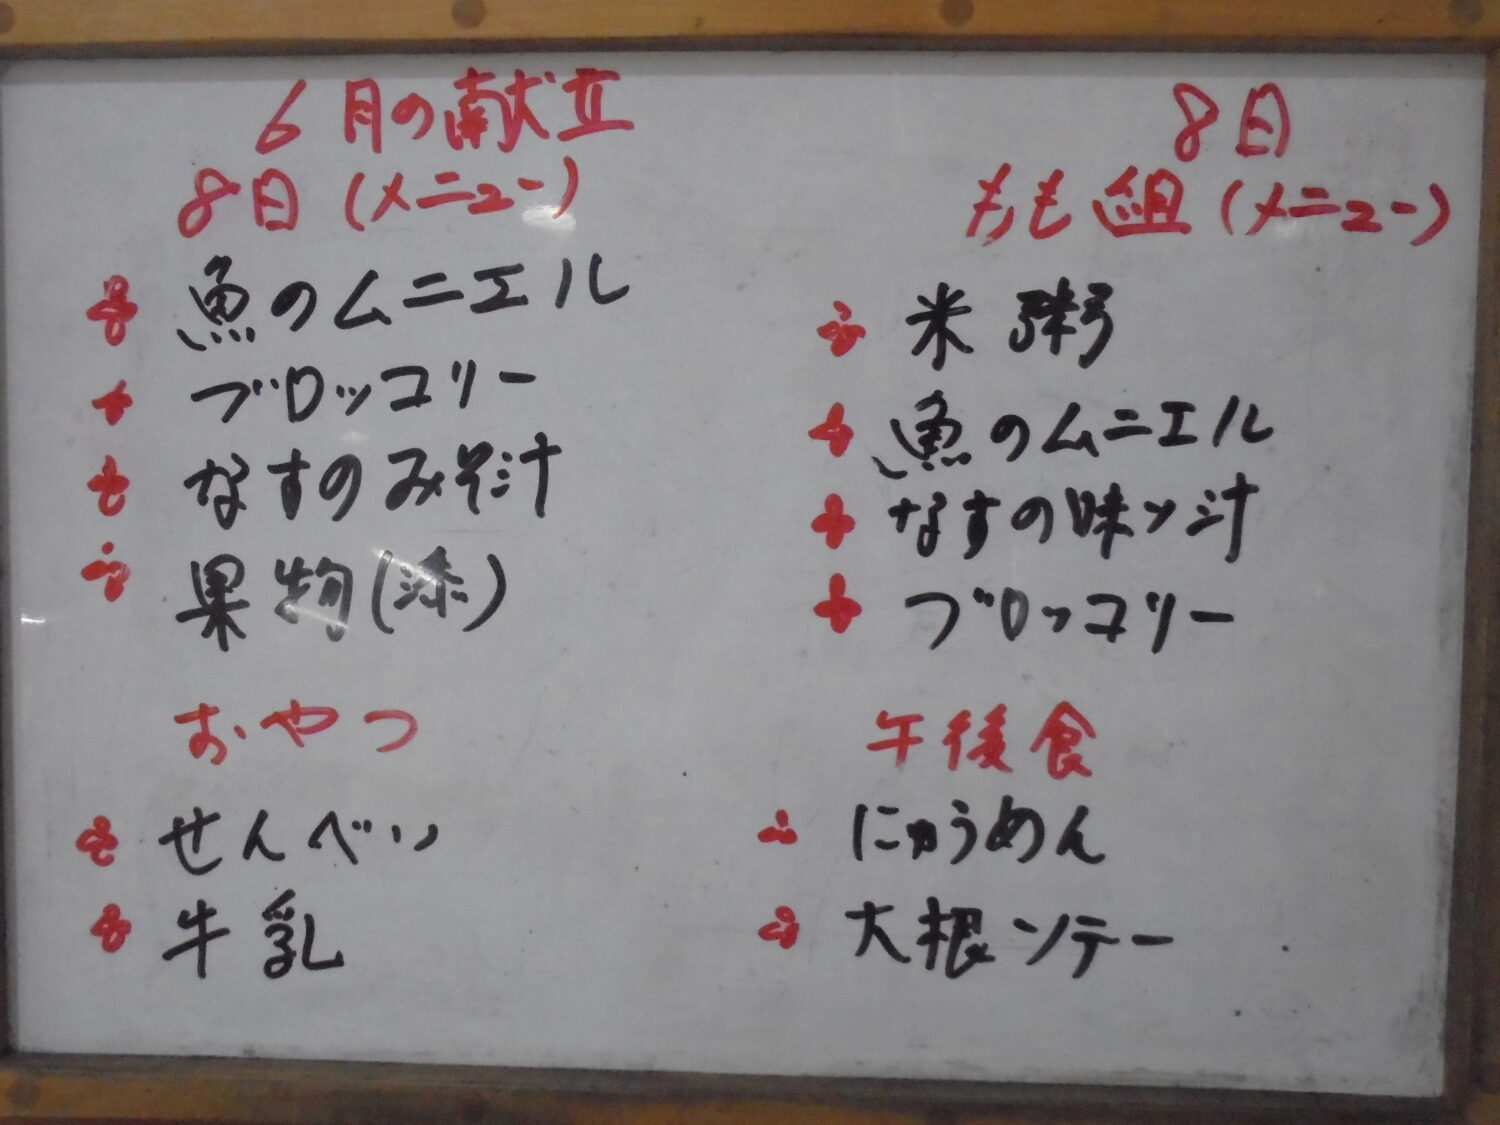 6月の献立
8日(メニュー)
魚のムニエル
ブロッコリー
なすのみそ汁
果物()
おやつ
せんべい
牛乳
8日
もも組(メニュー)
米粥
魚のムニエル
なすの味ソ汁
ブロッコリー
午後食
にゅうめん
大根ソテー